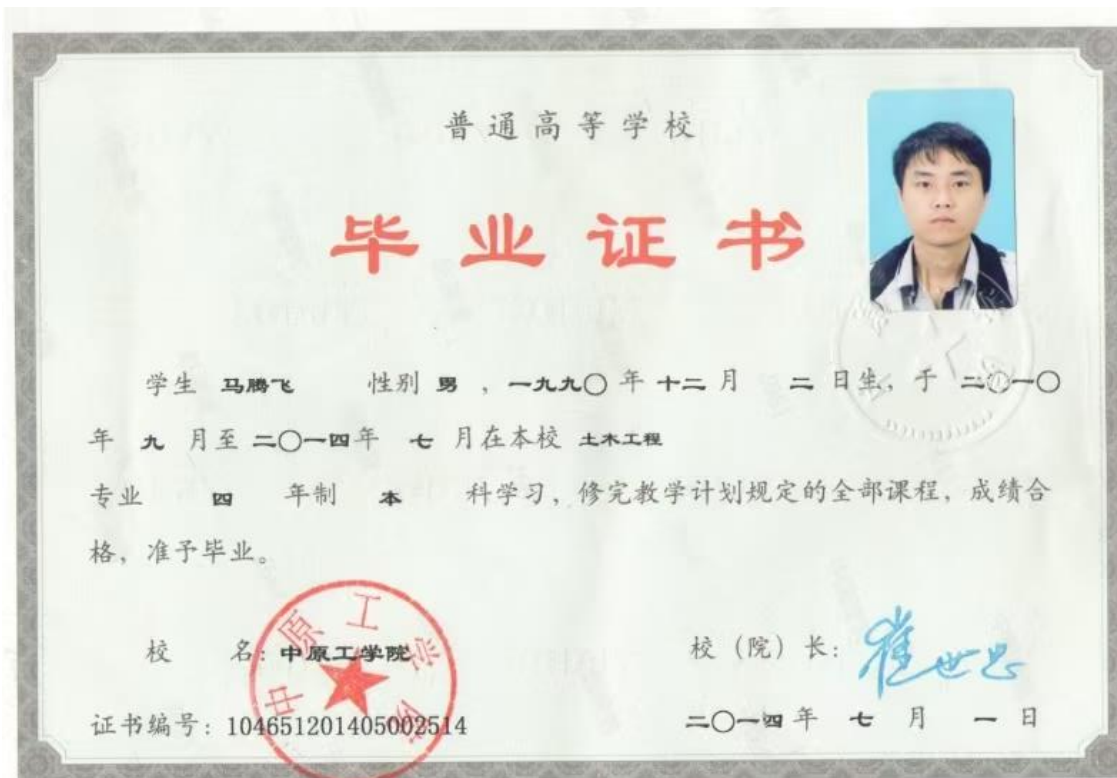 普通高等学校
毕业证书
学生 马腾飞 性别 男 ，一九九〇 年 十二 月 二 日生，于 二〇一〇
年 九 月至 二〇一四年 七 月在本校 土木工程
专业 四 年制 本 科学习，修完教学计划规定的全部课程，成绩合
格，准予毕业。
校 名：中原工学院
校（院）长：崔世忠
中原工学院
证书编号：104651201405002514
二〇一四 年 七 月 一 日